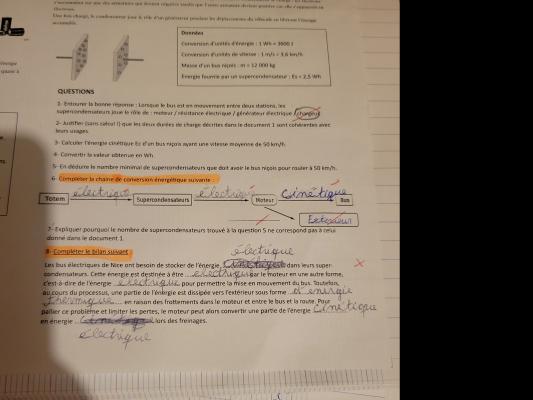 électrons.
Une fois chargé, le condensateur joue le rôle d'un générateur pendant les déplacements du véhicule en libérant l'énergie
accumulée.
Données
Conversion d'unités d'énergie : 1 Wh = 3600 J
Conversion d'unités de vitesse : 1 m/s = 3,6 km/h
Masse d'un bus niçois : m = 12 000 kg
Energie fournie par un supercondensateur : Es = 2,5 Wh
QUESTIONS
1- Entourer la bonne réponse : Lorsque le bus est en mouvement entre deux stations, les
supercondensateurs joue le rôle de : moteur / résistance électrique / générateur électrique / chargeur
2- Justifier (sans calcul !) que les deux durées de charge décrites dans le document 1 sont cohérentes avec
leurs usages.
3- Calculer l'énergie cinétique Ec d'un bus niçois ayant une vitesse moyenne de 50 km/h.
4- Convertir la valeur obtenue en Wh.
5- En déduire le nombre minimal de supercondensateurs que doit avoir le bus niçois pour rouler à 50 km/h.
6- Compléter la chaine de conversion énergétique suivante :
électrique électrique cinétique
Totem Supercondensateurs Moteur Bus
Extérieur
7- Expliquer pourquoi le nombre de supercondensateurs trouvé à la question 5 ne correspond pas à celui
donné dans le document 1.
8- Compléter le bilan suivant :
électrique
Les bus électriques de Nice ont besoin de stocker de l'énergie dans leurs super-
condensateurs. Cette énergie est destinée à être électrique par le moteur en une autre forme,
c'est-à-dire de l'énergie électrique pour permettre la mise en mouvement du bus. Toutefois,
au cours du processus, une partie de l'énergie est dissipée vers l'extérieur sous forme d'énergie
thermique en raison des frottements dans le moteur et entre le bus et la route. Pour
pallier ce problème et limiter les pertes, le moteur peut alors convertir une partie de l'énergie cinétique
en énergie lors des freinages.
électrique